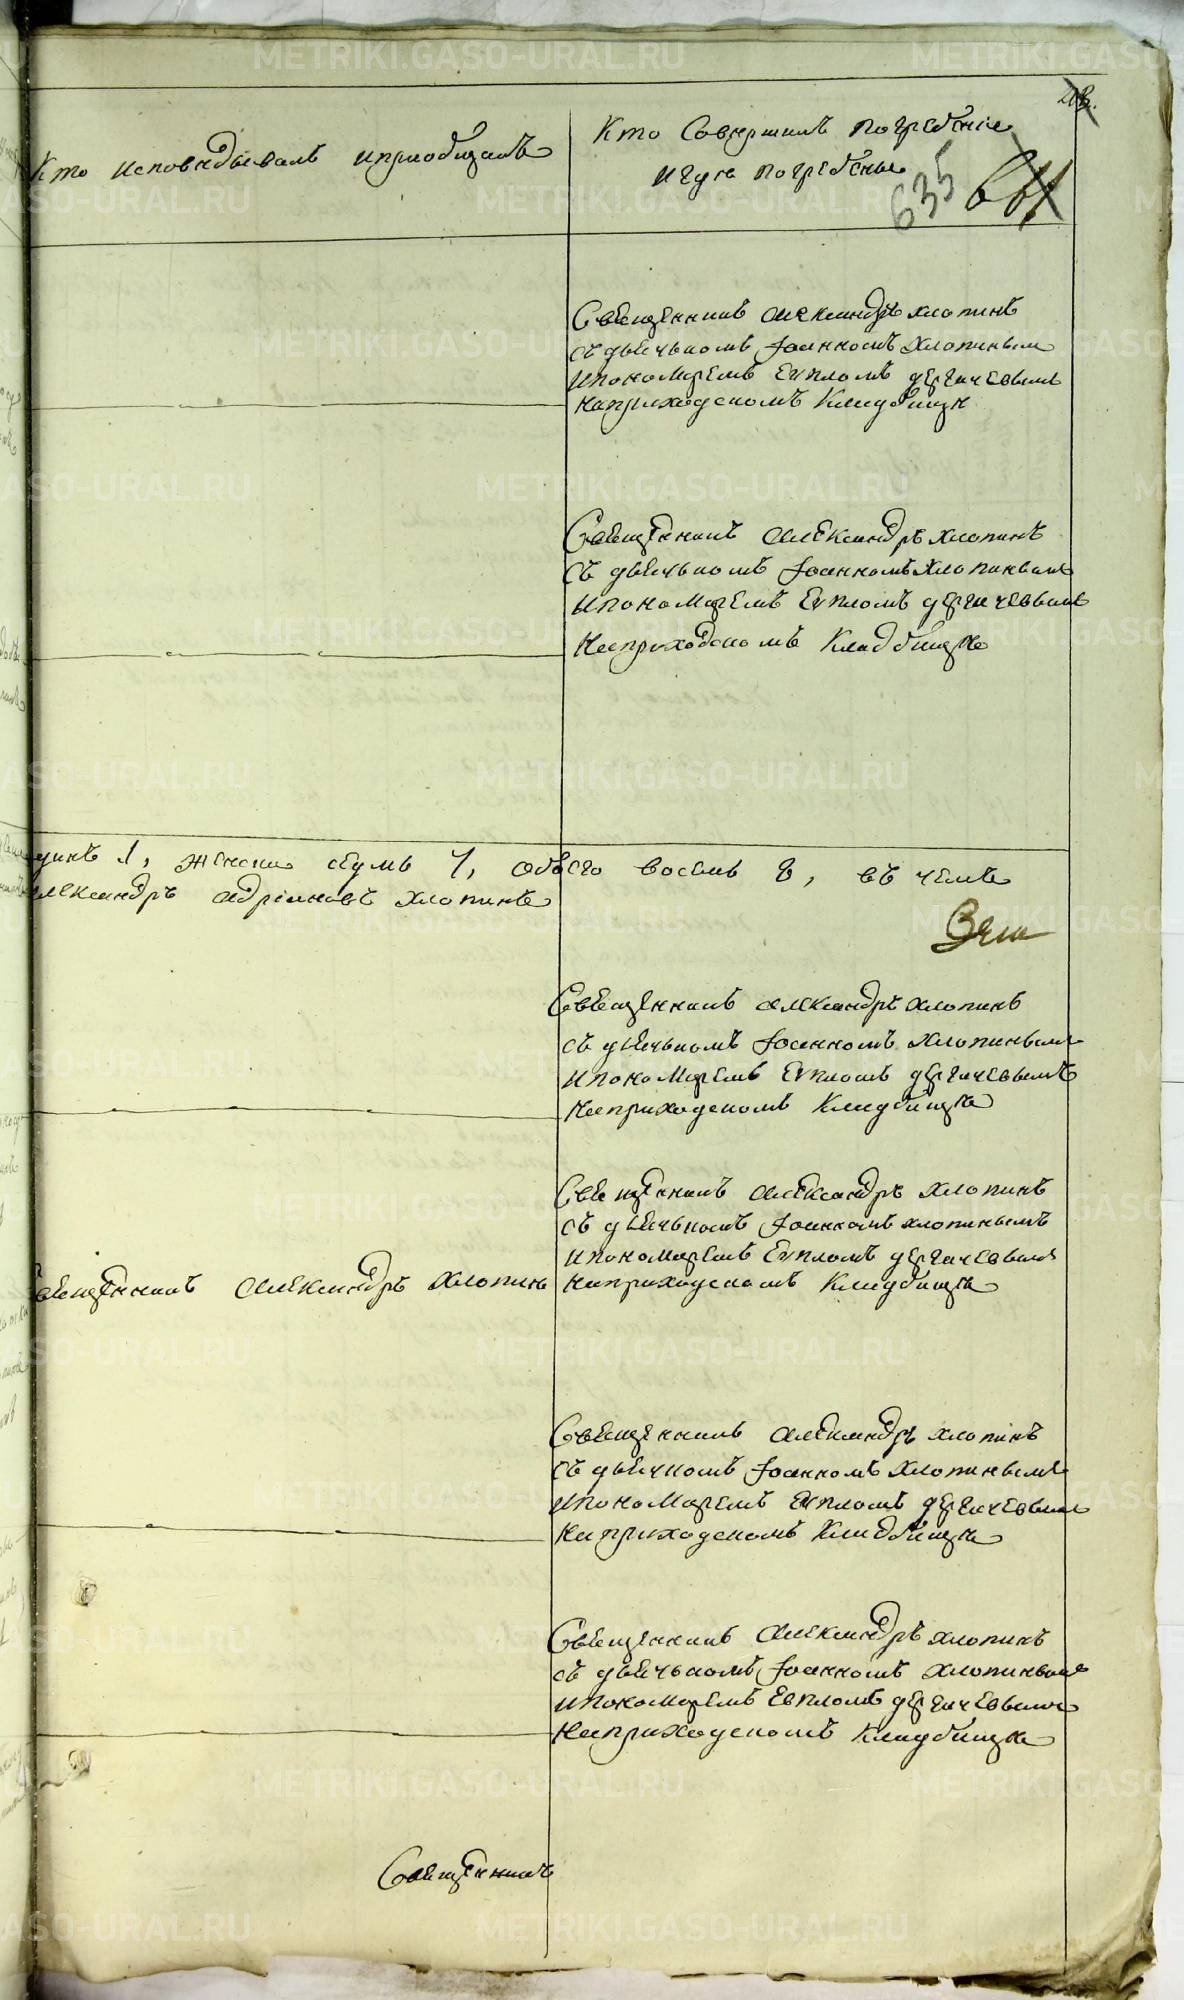 Кто исповѣдывалъ и приобщалъ
Кто Совершилъ погребение
и где погребены
635
Священникъ Александръ Хлопинъ
съ дьячькомъ Иоанномъ Хлопинымъ
и пономаремъ Евпломъ Дергачевымъ
на приходскомъ Кладбище
Священникъ Александръ Хлопинъ
съ дьячькомъ Иоанномъ Хлопинымъ
и пономаремъ Евпломъ Дергачевымъ
на приходскомъ Кладбище
динъ 1, женска семь 7, обоего восемь 8, въ чемъ
лександръ Адриановъ Хлопинъ
Священникъ Александръ Хлопинъ
съ дьячькомъ Иоанномъ Хлопинымъ
и пономаремъ Евпломъ Дергачевымъ
на приходскомъ Кладбище
Священникъ Александръ Хлопинъ
Священникъ Александръ Хлопинъ
съ дьячькомъ Иоанномъ Хлопинымъ
и пономаремъ Евпломъ Дергачевымъ
на приходскомъ Кладбище
Священникъ Александръ Хлопинъ
съ дьячкомъ Иоанномъ Хлопинымъ
и пономаремъ Евпломъ Дергачевымъ
на приходскомъ Кладбище
Священникъ Александръ Хлопинъ
съ дьячькомъ Иоанномъ Хлопинымъ
и пономаремъ Евпломъ Дергачевымъ
на приходскомъ Кладбище
Священникъ
METRIKI.GASO-URAL.RU